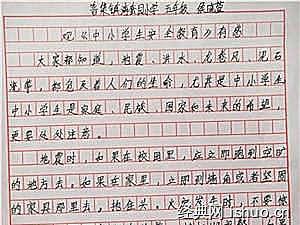 吉祥镇 小学 五年级
观《中小学生安全教育》有感
大家都知道，地震、洪水、龙卷风、泥石
流等，都危害着人们的生命，尤其是中小学生
中小学生是家庭、民族、国家和未来的希望，
更要处处注意。
地震时，如果在校园里，应立即跑到空旷
的地方去。如果在家里，立即到墙角或者坚固
的家具那里去，抱住头。火灾发生时，不要惊
经典网 jshuo.cn